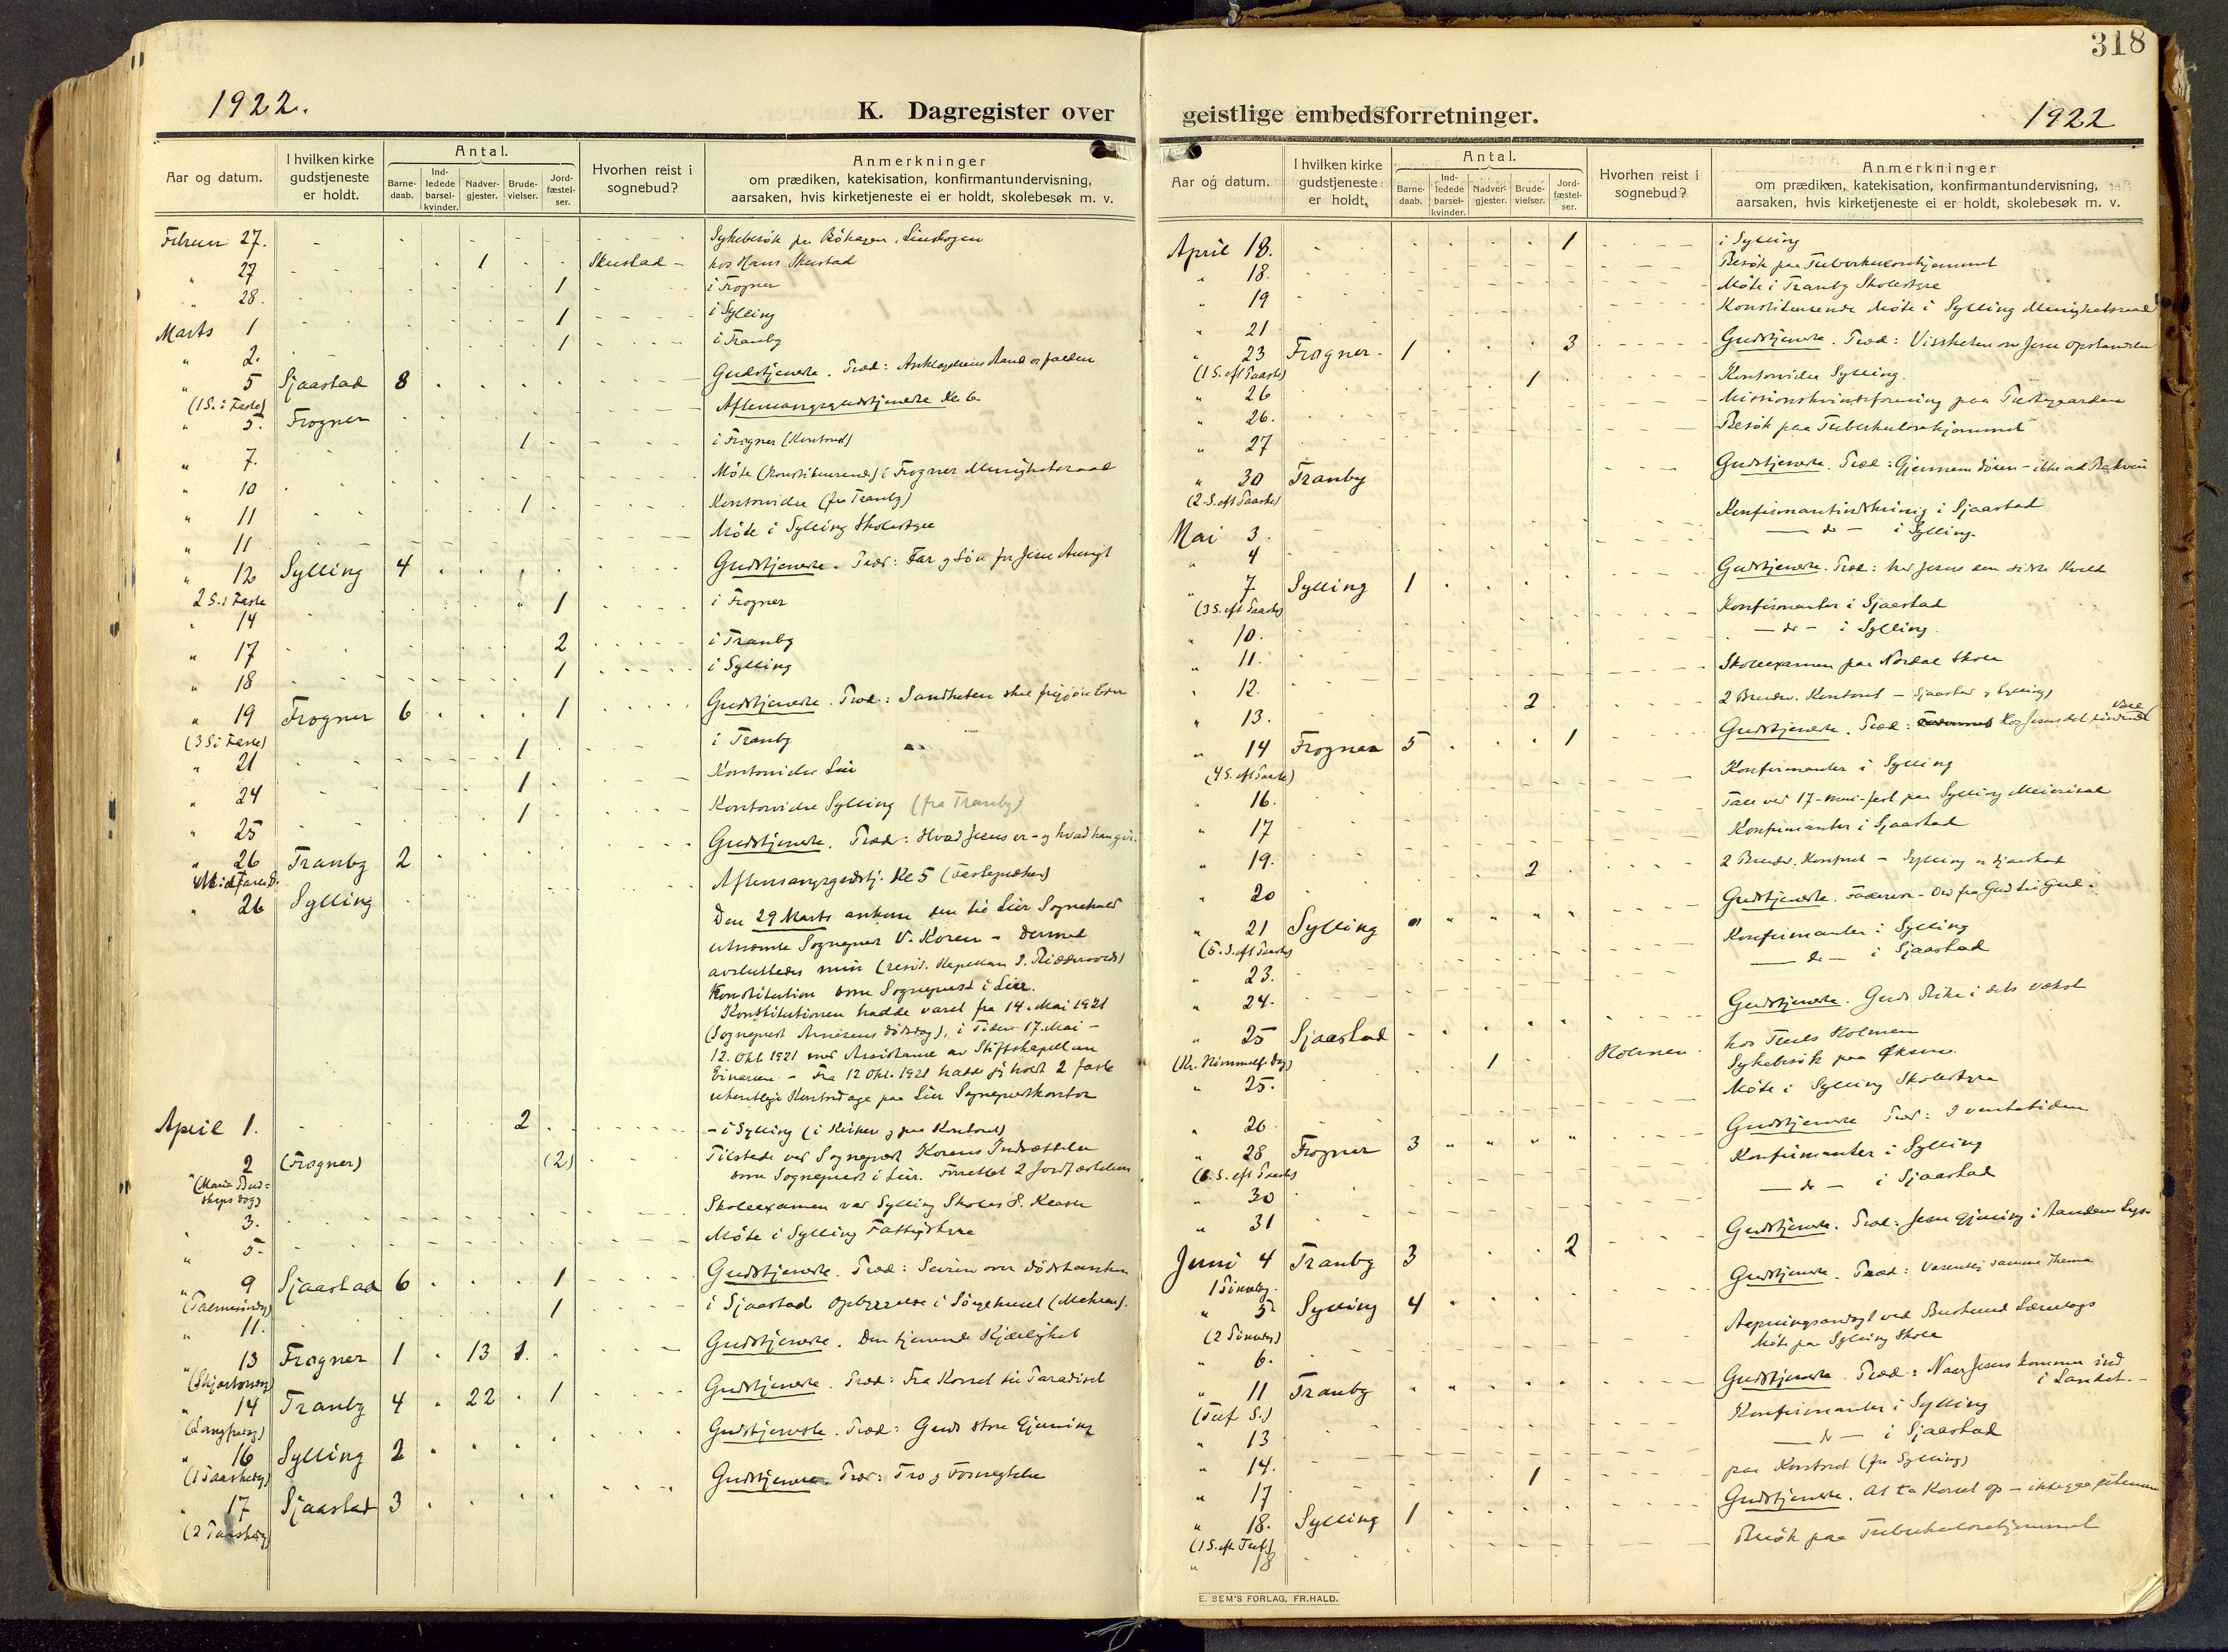 318
1922.
K. Dagregister over
Aar og datum.
I hvilken kirke
gudstjeneste
er holdt.
Antal.
Barne-
daab.
Ind-
ledede
barsel-
kvinder.
Nadver-
gjester.
Brude-
vielser.
Jord-
fæstel-
ser.
Hvorhen reist i
sognebud?
Anmerkninger
om prædiken, katekisation, konfirmantundervisning,
aarsaken, hvis kirketjeneste ei er holdt, skolebesøk m. v.
Februar 27. Sykebesøk
" 27 1 Skustad - hos Hans Skustad
" 28. 1 i Frogner
Marts 1 1 i Sylling
" 2. 1 i Tranby
" 5 Sjaastad 8 Gudstjeneste. Præd:
(1 S. i Faste)
" 5. Frogner Aftensangsgudstjeneste Kl 6
" 7. 1 i Frogner (Kontoret)
" 10 Møte (konstituerende) i Frogner Menighetsraad
" 11 1 (fra Tranby)
" 11 Møte i Sylling Skolestyre
" 12 Sylling 4 Gudstjeneste. Præd: Far og Søn for Jesu Ansigt
2 S. i Faste
" 14 1 i Frogner
" 17 2 i Tranby
" 18 1 i Sylling
" 19 Frogner 6 1 Gudstjeneste. Præd: Sandheten skal frigjøre
(3 S i Faste)
" 21 1 i Tranby
" 24 1 Lier
" 25 1 Sylling (fra Tranby)
" 26 Tranby 2 Gudstjeneste. Præd: Hvad Jesus er - og hvad han gir.
" 26 Sylling Aftensangsgudstj. Kl 5
Den 29 Marts ankom den til Lier Sognekald
utnævnte Sogneprest V. Koren - dermed
avsluttedes min (resid. Kapellan
Konstitution som Sogneprest i Lier.
Konstitutionen hadde varet fra 14. Mai 1921
(Sogneprest dødsdag), i Tiden 17. Mai -
12. Okt 1921 med Assistanse av Stiftskapellan
- Fra 12 Okt. 1921 hadde jeg holdt 2 faste
ukentlige Kontordage paa Lier Sogneprestkontor
April 1. 2 - i Sylling (i Kirken og paa Kontoret)
" 2 (Frogner) (2) Tilstede ved Sogneprest Korens Indsættelse
(Maria Bud-
skaps dag) som Sogneprest i Lier. Forrettet 2 Jordfæstelser
" 3. Skoleexamen ved Sylling Skoles
" 5. Møte i Sylling Fattigstyre
" 9 Sjaastad 6 1 Gudstjeneste. Præd: Seiren over Dødstanken
(Palmesøndag)
" 11. 1 i Sjaastad
" 13 Frogner 1 13 1. Gudstjeneste. Den tjenende Kjærlighet
(Skjærtorsdag)
" 14 Tranby 4 22 1 Gudstjeneste. Præd: Fra Korset til Paradiset
(Langfredag)
" 16 Sylling 2 Gudstjeneste. Præd: Guds store Gjerning
(1 Paaskedag)
" 17 Sjaastad 3 Gudstjeneste. Præd: Tro og Fornegtelse
(2 Paaskedag)
geistlige embedsforretninger.
1922
Aar og datum.
I hvilken kirke
gudstjeneste
er holdt.
Antal.
Barne-
daab.
Ind-
ledede
barsel-
kvinder.
Nadver-
gjester.
Brude-
vielser.
Jord-
fæstel-
ser.
Hvorhen reist i
sognebud?
Anmerkninger
om prædiken, katekisation, konfirmantundervisning,
aarsaken, hvis kirketjeneste ei er holdt, skolebesøk m. v.
April 18. 1 i Sylling
" 18. Besøk paa Tuberkulosehjemmet
" 19 Møte i Tranby Skolestyre
" 21 Konstituerende Møte i Sylling Menighetsraad
" 23 Frogner 1 3 Gudstjeneste. Præd: Vissheten om Jesu Opstandelse
(1 S. eft Paaske)
" 26 1 Sylling.
" 26. Missionskvindeforening paa Prestegaarden
" 27 Besøk paa Tuberkulosehjemmet
" 30 Tranby Gudstjeneste. Præd: Gjennem døren - ikke ad
(2 S. eft Paaske)
Mai 3. i Sjaastad
" 4 - do - i Sylling.
" 7 Sylling 1 Gudstjeneste. Præd:
(3 S. eft Paaske)
" 10. Konfirmanter i Sjaastad
" 11. - do - i Sylling.
" 12. Skoleexamen paa Nordal Skole
" 13. 2 2 Brudev. Kontoret - Sjaastad og Sylling)
" 14 Frogner 5 1 Gudstjeneste. Præd:
(4 S. eft Paaske)
" 16. Konfirmanter i Sylling
" 17 Tale ved 17-mai-fest paa Sylling
" 19. Konfirmanter i Sjaastad
" 20 2 2 Brudev. Kontoret - Sylling og Sjaastad
" 21 Sylling Gudstjeneste. Fadervor - Ord fra Gud til Gud.
(5. S. eft Paaske)
" 23. Konfirmanter i Sylling
" 24. - do - i Sjaastad
" 25 Sjaastad Gudstjeneste. Guds Rike i dets vækst
(Kr. Himmelf. Dag)
" 25. 1 Holmen hos Holmen
Sykebesøk paa
" 26 Møte i Sylling Skolestyre
" 28 Frogner 3 Gudstjeneste Præd: I ventetiden
(6. S. eft Paaske)
" 30 Konfirmanter i Sylling
" 31 - do - i Sjaastad
Juni 4 Tranby 3 2 Gudstjeneste. Præd: Jesu Gjerning i Aandens Lys
1 Pinsedag.
" 5 Sylling 4 Gudstjeneste. Præd: Væsentlig samme Thema
(2 Pinsedag)
" 6. ved Buskerud Lærerlags
Møte paa Sylling Skole
" 11 Tranby Gudstjeneste. Præd: Naar Jesus kommer ind
(Tref S.) i Landet. -
" 13 Konfirmanter i Sylling
" 14. - do - i Sjaastad
" 17 1 paa Kontoret (fra Sylling)
" 18. Sylling 1 Gudstjeneste. At ta Korset op -
(1 S. eft. Tref.)
" 18 Besøk paa Tuberkulosehjemmet
E. SEM'S FORLAG, FR.HALD.